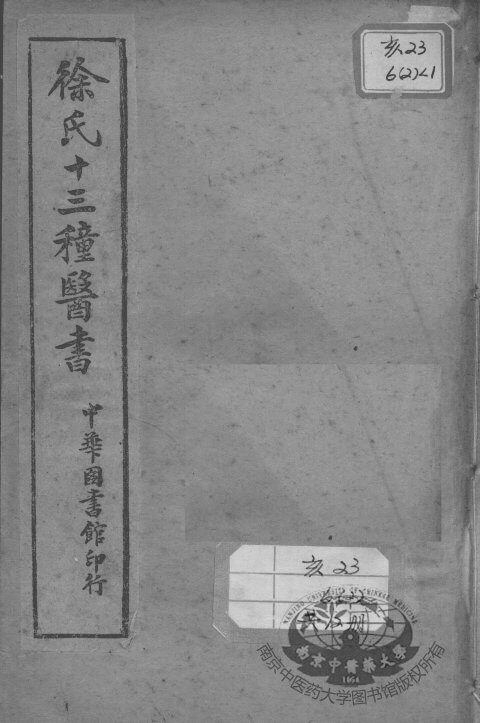 徐氏十三種醫書
中華圖書館印行
亥23
6(2)<1
亥23
共12册
NANJING UNIVERSITY OF CHINESE MEDICINE
南京中醫藥大學
1954
南京中医药大学图书馆版权所有